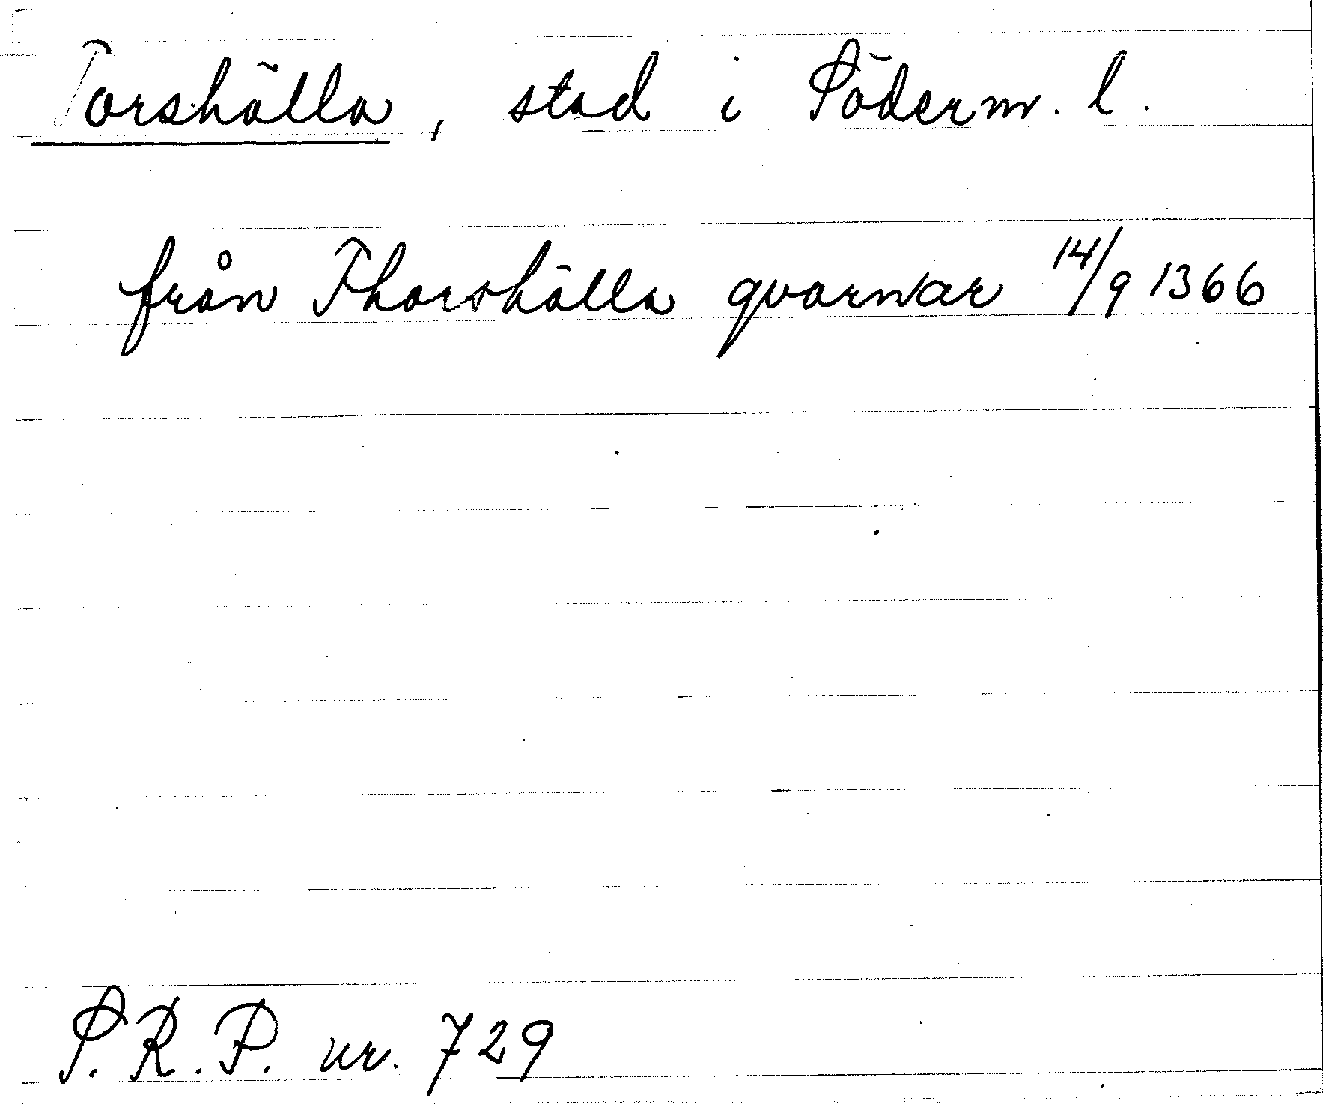 Torshälla, stad i Söderm. l.
från Thorshälla qvarnar 14/9 1366
S.R.P. nr. 729